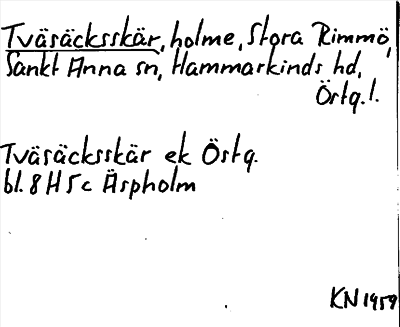 Tväsäcksskär, holme, Stora Rimmö,
Sankt Anna sn, Hammarkinds hd,
Östg.l.
Tväsäcksskär ek Östg.
bl. 8 H 5 c Äspholm
KN 1959